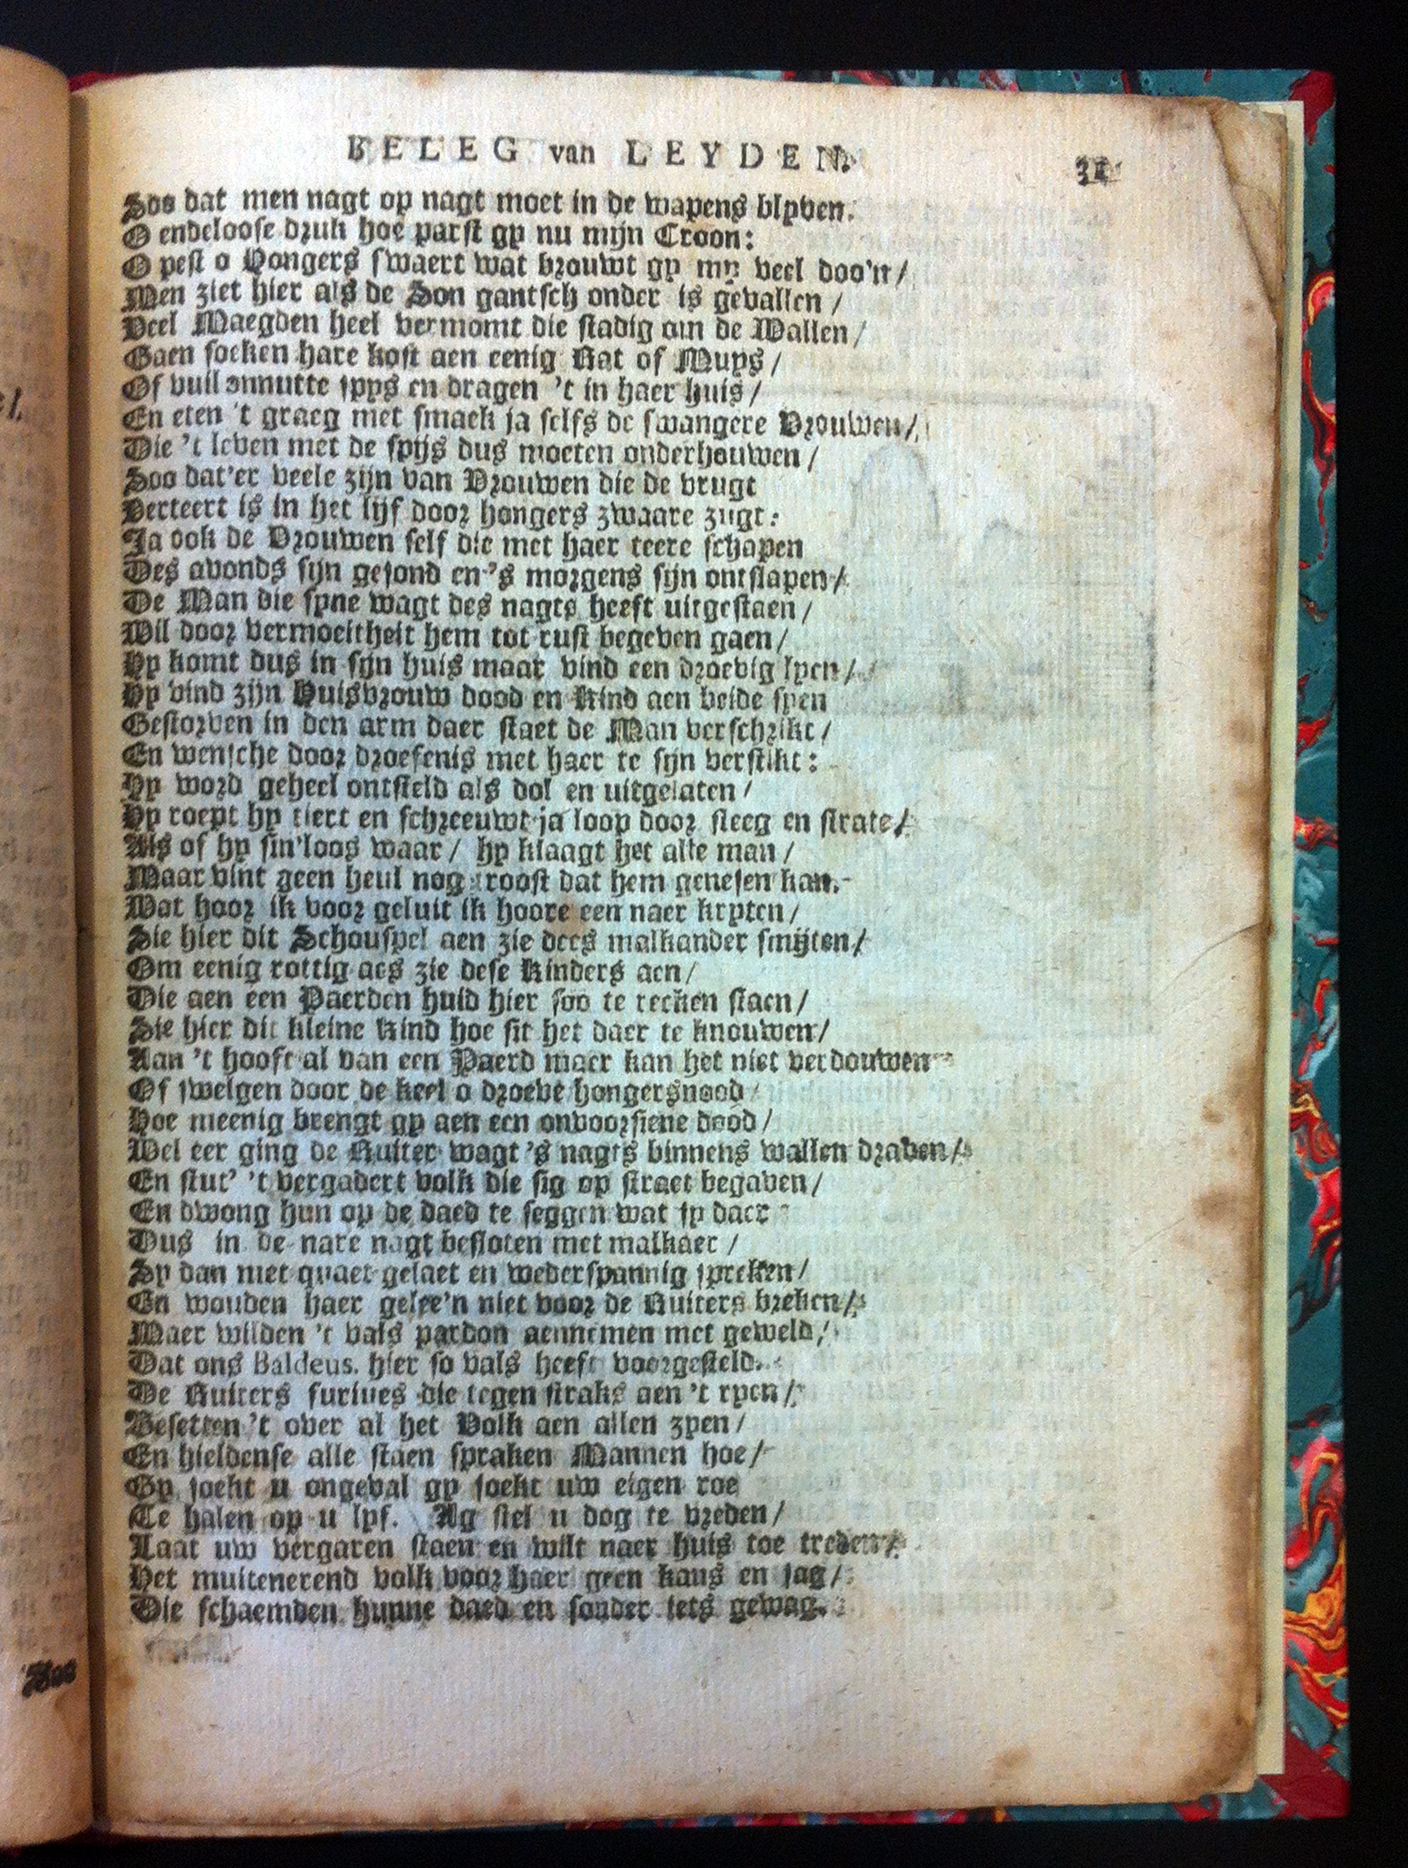 BELEG van LEYDEN.
Soo dat men nagt op nagt moet in de wapens blyven.
O endeloose druk hoe parst gy nu mijn Croon:
O pest o Hongers swaert wat brouwt gy my veel doo'n /
Men ziet hier als de Son gantsch onder is gevallen /
Veel Maegden heel vermomt die stadig om de Wallen /
Gaen soeken hare kost aen eenig Rat of Muys /
Of vuil onnutte spys en dragen 't in haer huis /
En eten 't graeg met smaek ja selfs de swangere Vrouwen /
Die 't leven met de spijs dus moeten onderhouwen /
Soo dat'er veele zijn van Vrouwen die de vrugt
Verteert is in het lijf door hongers zwaare zugt:
Ja ook de Vrouwen self die met haer teere schapen
Des avonds sijn gesond en 's morgens sijn ontslapen /
De Man die syne wagt des nagts heeft uitgestaen /
Wil door vermoeitheit hem tot rust begeven gaen /
Hy komt dus in sijn huis maar vind een droevig lyen /
Hy vind zijn Huisvrouw dood en Kind aen beide syen
Gestorven in den arm daer staet de Man verschrikt /
En wensche door droefenis met haer te sijn verstikt:
Hy word geheel ontsteld als dol en uitgelaten /
Hy roept hy tiert en schreeuwt ja loop door steeg en strate /
Als of hy sin'loos waar / hy klaagt het alle man /
Maar vint geen heul nog troost dat hem genesen kan.
Wat hoor ik voor geluit ik hoore een naer kryten /
Sie hier dit Schouspel aen zie dees malkander smijten /
Om eenig rottig aes zie dese Kinders aen /
Die aen een Paerden huid hier soo te recken staen /
Sie hier dit kleine Kind hoe sit het daer te knouwen /
Aan 't hooft al van een Paerd maer kan het niet verdouwen
Of swelgen door de keel o droeve hongersnood
Hoe meenig brengt gy aen een onvoorsiene dood /
Wel eer ging de Ruiter wagt 's nagts binnens wallen draven /
En stut' 't vergadert volk die sig op straet begaven /
En dwong hun op de daed te seggen wat sy daer
Dus in de nare nagt besloten met malkaer /
Sy dan met quaet gelaet en wederspannig spreken /
En wouden haer gelee'n niet voor de Ruiters breken /
Maer wilden 't vals pardon aennemen met geweld /
Dat ons Baldeus. hier so vals heeft voorgesteld.
De Ruiters furiues die tegen straks aen 't ryen /
Besetten 't over al het Volk aen allen zyen /
En hieldense alle staen spraken Mannen hoe /
Gy soekt u ongeval gy soekt uw eigen roe
Te halen op u lyf. Ag stel u dog te vreden /
Laat uw vergaren staen en wilt naer huis toe treden /
Het muitenerend volk voor haer geen kans en sag /
Die schaemden hunne daed en sonder iets gewag.